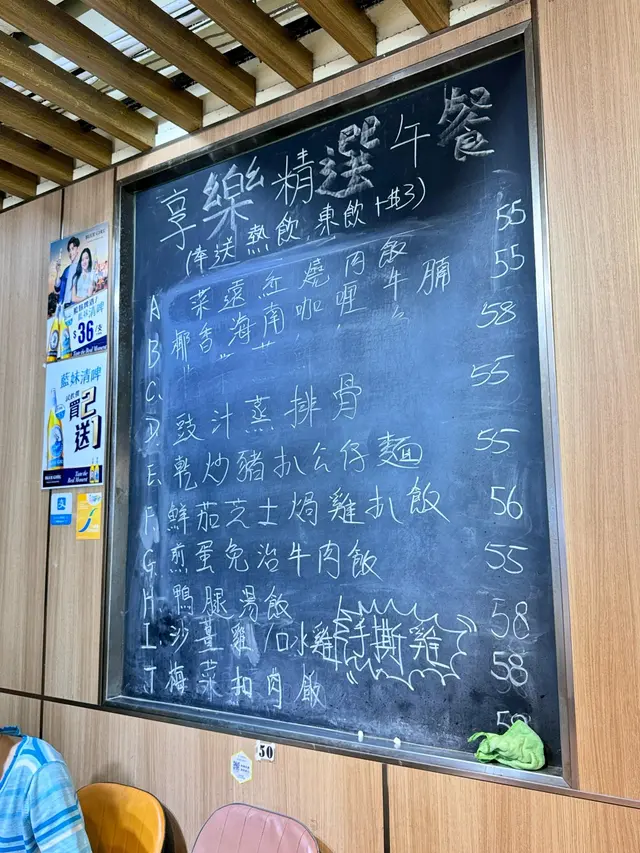 享樂精選午餐
(奉送熱飲,凍飲+$3)
A 菜遠紅燒肉飯 55
B 椰香海南咖喱牛腩 55
C. 〃 〃 〃 〃 58
D. 豉汁蒸排骨 55
E. 乾炒豬扒公仔麵 55
F. 鮮茄芝士焗雞扒飯 56
G. 煎蛋免治牛肉飯 55
H. 鴨腿湯飯 58
I. 沙薑雞/口水雞 手撕雞 58
J 梅菜扣肉飯 58
$36/支
藍妹清啤
買2送1
50